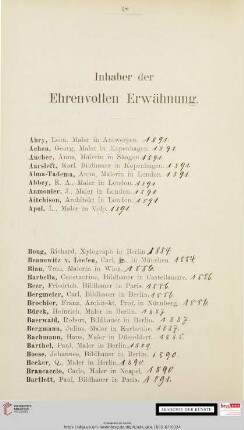 Inhaber der
Ehrenvollen Erwähnung.
Abry, Léon, Maler in Antwerpen. 1891.
Achen, Georg, Maler in Kopenhagen. 1891.
Ancher, Anna, Malerin in Skagen 1891.
Aarsleff, Karl, Bildhauer in Kopenhagen. 1891.
Alma-Tadema, Anna, Malerin in London. 1891.
Abbey, E. A., Maler in London. 1891.
Aumonier, J., Maler in London. 1891.
Aitchison, Architekt in London. 1891
Apol, L., Maler in Velp. 1891.
Bong, Richard, Xylograph in Berlin 1884.
Bennewitz v. Loefen, Carl, jr. in München. 1884
Blau, Tina, Malerin in Wien. 1886.
Barbella, Constantino, Bildhauer in Castellamare. 1886
Beer, Friedrich, Bildhauer in Paris. 1886.
Bergmeier, Carl, Bildhauer in Berlin. 1886.
Brochier, Franz, Architekt, Prof. in Nürnberg. 1886.
Bürck, Heinrich, Maler in Berlin. 1887.
Baerwald, Robert, Bildhauer in Berlin. 1887.
Bergmann, Julius, Maler in Karlsruhe. 1887.
Bachmann, Hans, Maler in Düsseldorf. 1888.
Barthel, Paul, Maler in Berlin. 1889.
Boese, Johannes, Bildhauer in Berlin. 1890.
Becker, G., Maler in Berlin. 1890.
Brancaccio, Carlo, Maler in Neapel. 1890
Bartlett, Paul, Bildhauer in Paris. 1891.
AKADEMIE DER KÜNSTE